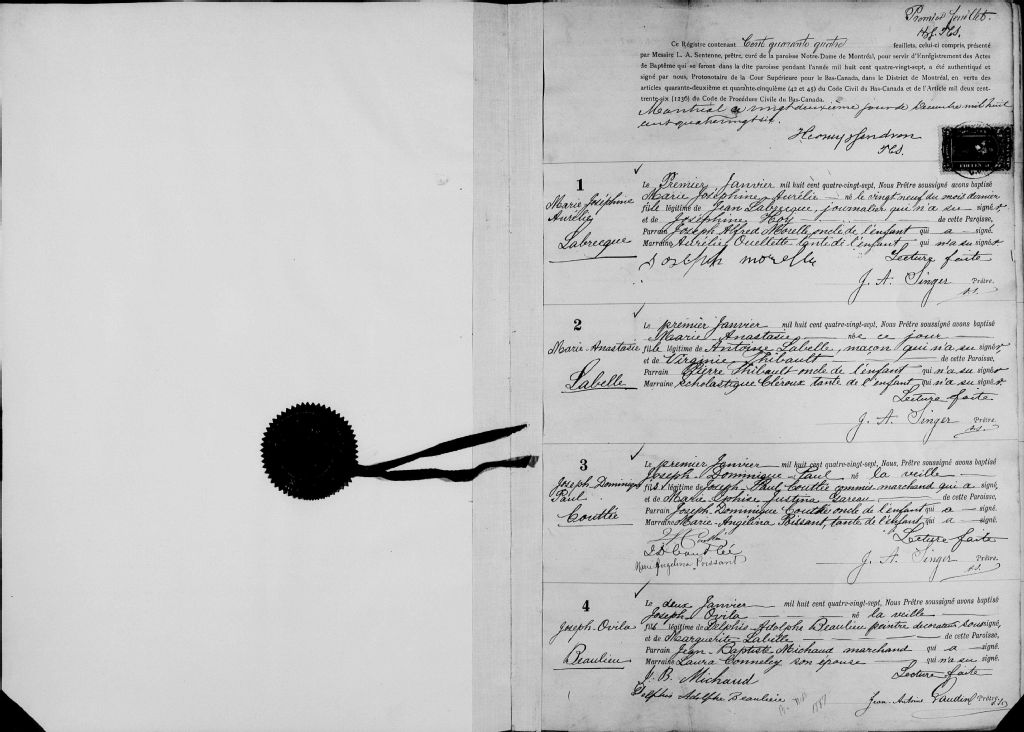 Premier feuillet.
Ce Régistre contenant Cent quarante quatre feuillets, celui-ci compris, présenté
par Messire L. A. Sentenne, prêtre, curé de la paroisse Notre-Dame de Montréal, pour servir d'Enrégistrement des Actes
de Baptême qui se feront dans la dite paroisse pendant l'année mil huit cent quatre-vingt-sept, a été authentiqué et
signé par nous, Protonotaire de la Cour Supérieure pour le Bas-Canada, dans le District de Montréal, en vertu des
articles quarante-deuxième et quarante-cinquième (42 et 45) du Code Civil du Bas-Canada et de l'Article mil deux cent-
trente-six (1236) du Code de Procédure Civile du Bas-Canada.
Montréal ce vingt deuxième jour de Décembre mil huit
cent quatrevingt six.
1
Marie Joséphine
Aurélie
Labrecque
Le Premier Janvier mil huit cent quatre-vingt-sept, Nous Prêtre soussigné avons baptisé
Marie Joséphine Aurélie né le vingt neuf du mois dernier
fille légitime de Jean Labrecque, journalier qui n'a su signé
et de Joséphine Roy de cette Paroisse,
Parrain Joseph Alfred Morelle oncle de l'enfant qui a signé.
Marraine Aurélie Ouellette tante de l'enfant qui n'a su signé
Joseph morelle Lecture faite
J. A. Singer Prêtre.
2
Marie-Anastasie
Labelle
Le premier Janvier mil huit cent quatre-vingt-sept, Nous Prêtre soussigné avons baptisé
Marie Anastasie née ce jour
fille légitime de Antoine Labelle, maçon qui n'a su signé
et de Virginie Thibault de cette Paroisse,
Parrain Pierre Thibault oncle de l'enfant qui n'a su signé
Marraine Scholastique Cléroux tante de l'enfant qui n'a su signé
Lecture faite
J. A. Singer Prêtre.
3
Joseph Dominique
Paul
Coutlée
Le premier Janvier mil huit cent quatre-vingt-sept, Nous, Prêtre soussigné avons baptisé
Joseph Dominique Paul né la veille
fils légitime de Joseph Paul Coutlée commis marchand qui a signé,
et de Marie Sophise Justina Gareau de cette Paroisse,
Parrain Joseph Dominique Coutlée oncle de l'enfant qui a signé.
Marraine Marie-Angélina Poissant, tante de l'enfant qui a signé.
Lecture faite
J D Coutlée
Marie Angelina Poissant
J. A. Singer Prêtre.
4
Joseph-Ovila
Beaulieu
Le deux Janvier mil huit cent quatre-vingt-sept, Nous Prêtre soussigné avons baptisé
Joseph Ovila né la veille
fils légitime de Delphis Adolphe Beaulieu peintre décorateur soussigné,
et de Marguerite Labille de cette Paroisse,
Parrain Jean-Baptiste Michaud marchand qui a signé.
Marraine Laura Conneley son épouse qui n'a su signé.
J. B. Michaud Lecture faite
Delphis Adolphe Beaulieu
Jean-Antoine Gaudin Prêtre